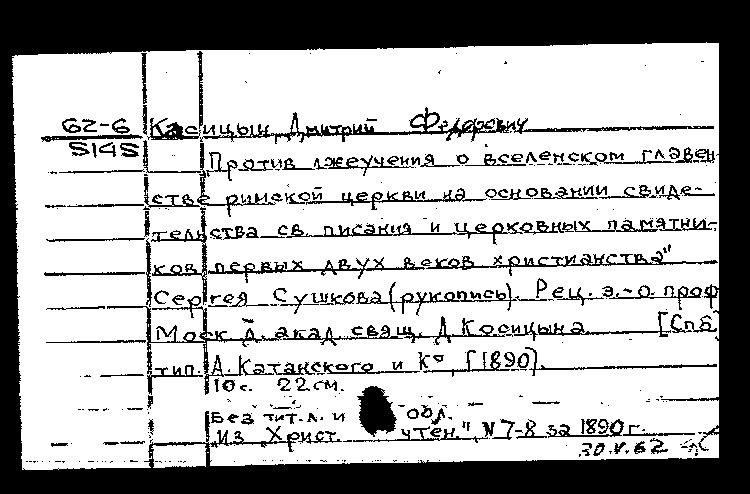 62-6 Касицын, Дмитрий Федорович
5145
„Против лжеучения о вселенском главен
стве римской церкви на основании свиде-
тельства св. писания и церковных памятни-
ков первых двух веков христианства"
Сергея Сушкова (рукопись). Рец. э.-о. проф
Моск. Д. акад. свящ. Д. Косицына [Спб
тип. А. Катанского и К°, [1890].
10 с. 22 см.
Без тит. л. и обл.
Из „Христ. чтен.", N 7-8 за 1890 г.
30.V.62